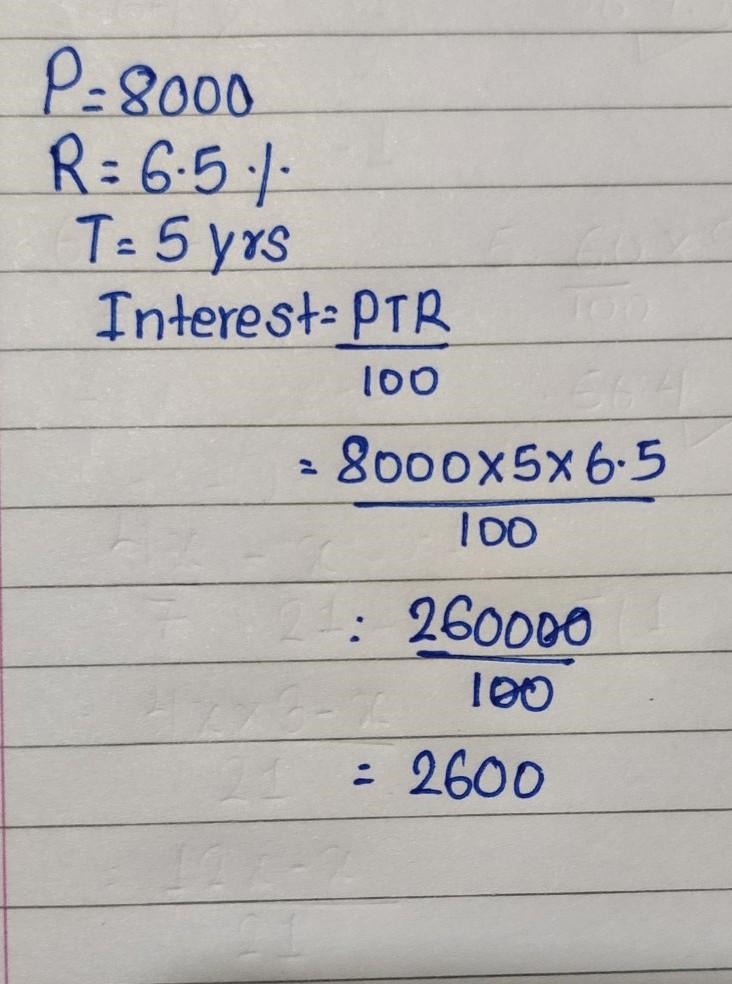 P=8000
R=6.5%
T=5 yrs
Interest=PTR
100
=8000x5x6.5
100
: 260000
100
= 2600